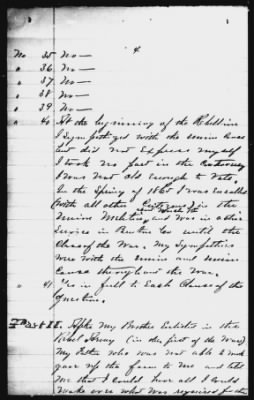 4
No 35 No —
" 36 No —
" 37 No —
" 38 No —
" 39 No —
" 40 At the beginning of the Rebellion
I Sympathized with the Union Cause
but did not Express myself
I took no part in the
I was not old enough to Vote,
In the Spring of 1865 I was enrolled
with all other Citizens in the
Union Militia, and was in
Service in Co until the
Close of the War. My Sympathies
were with the Union and Union
Cause throughout the War.
" 41 Yes in full to Each Clause of the
question.
Part II. After My Brother Enlisted in the
Rebel Army (in the first of the War)
My Father who was not able to work
gave up the farm to me and told
me that I could have all I could
make over what was required for the